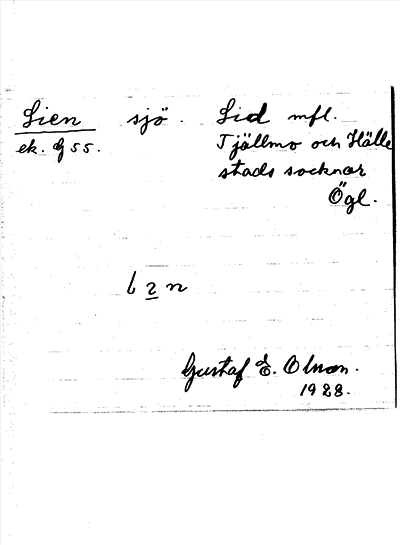 Lien sjö. Lid mfl.
ek. 55. Tjällmo och Hälle
stads socknar
Ögl.
Gustaf E. Olson.
1928.